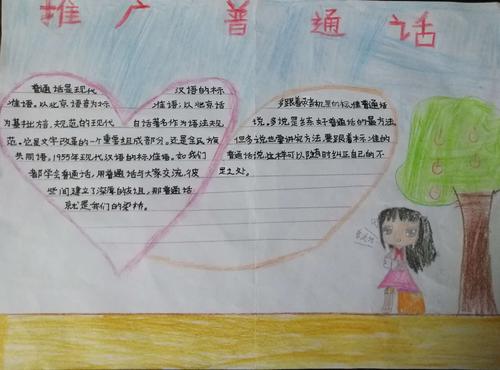 推广普通话
普通话是现代 汉语的标
准语。以北京语音为标 准语，以北京话
为基础方，规范的现代 白话著名作为语法规
范。它是文字改革的一个重要组成部分。还是全民族
共同语。1955年现代汉语的标准语。如我们
都学会普通话，用普通话与大家交流，彼
此间建立了深厚的友谊，那普通话
就是我们的桥。
多跟着机里的标准普通话
说。多说是练好普通话的最方法
但多说也要讲究方法，要跟着标准的
普通话说，这样可以随时纠正自己的不
足之处。